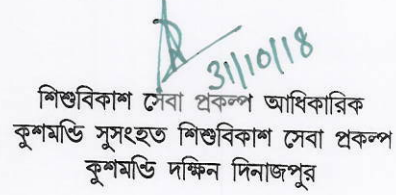 31/10/18
শিশুবিকাশ সেবা প্রকল্প আধিকারিক
কুশমন্ডি সুসংহত শিশুবিকাশ সেবা প্রকল্প
কুশমন্ডি দক্ষিন দিনাজপুর